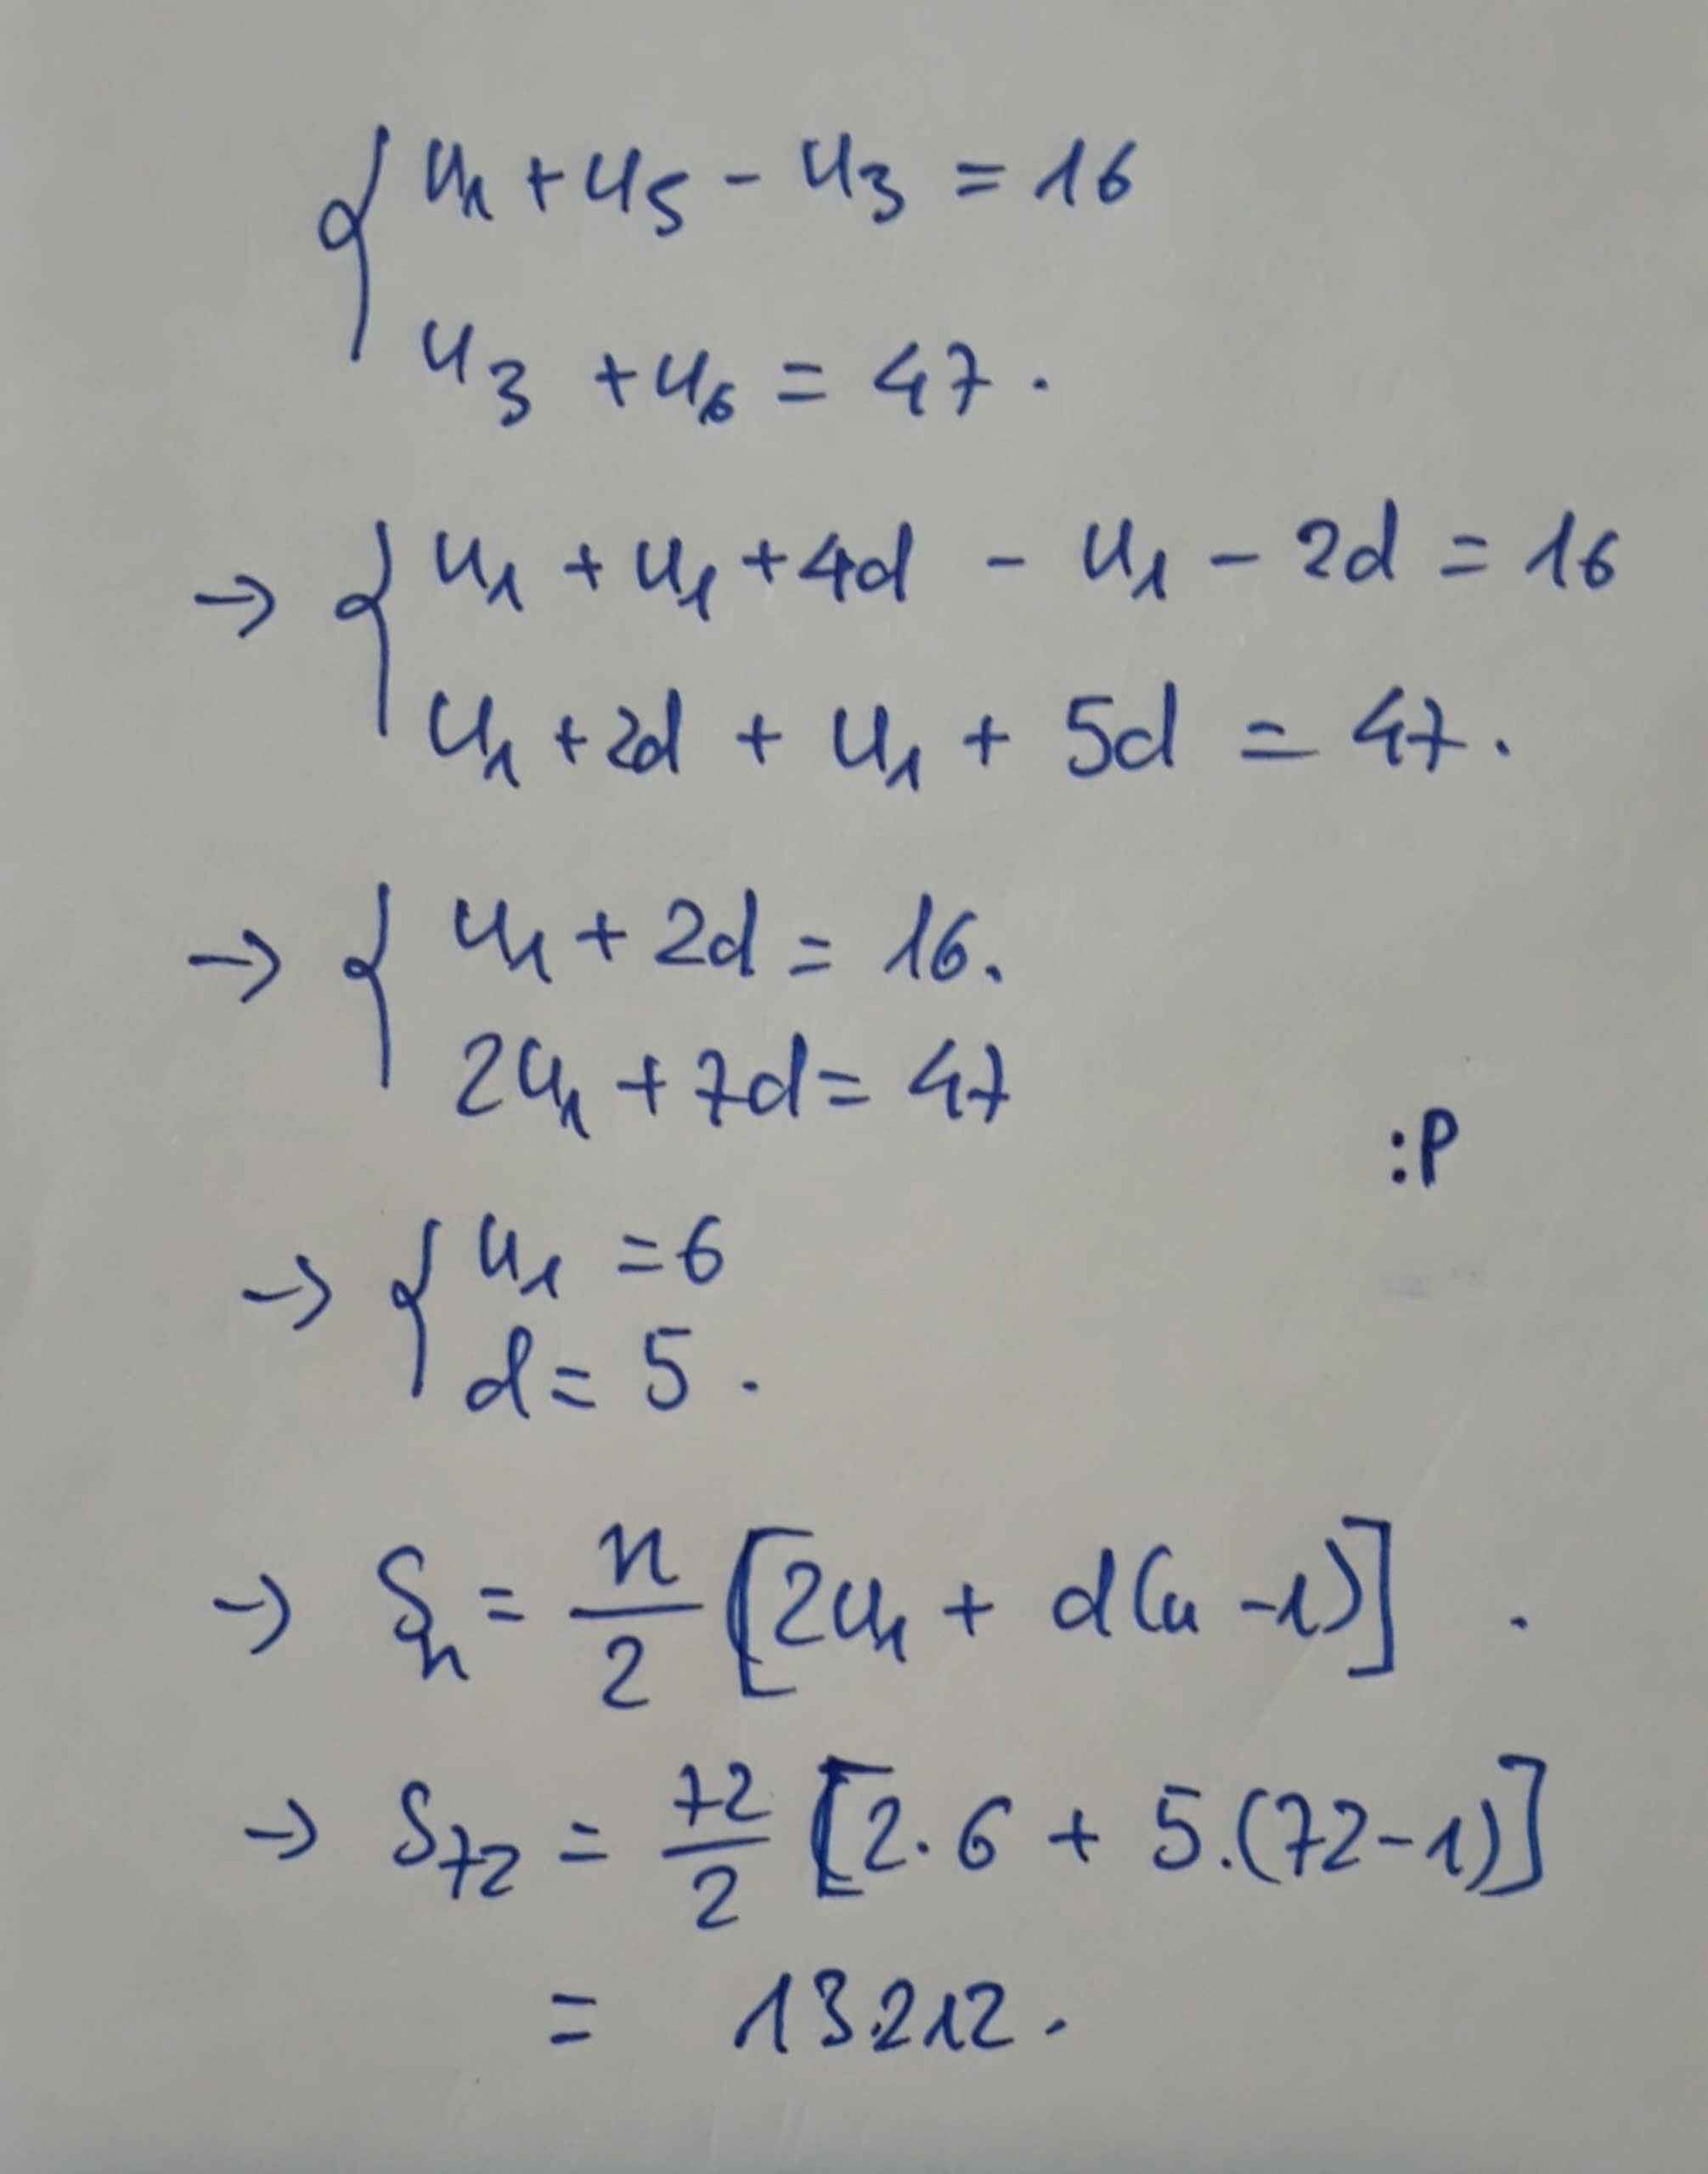 { u₁ + u₅ - u₃ = 16
u₃ + u₆ = 47.
→ { u₁ + u₁ + 4d - u₁ - 2d = 16
u₁ + 2d + u₁ + 5d = 47.
→ { u₁ + 2d = 16.
2u₁ + 7d = 47
:P
→ { u₁ = 6
d = 5.
→ Sₙ = n/2 [2u₁ + d(n - 1)].
→ S₇₂ = 72/2 [2.6 + 5.(72-1)]
= 13.212.